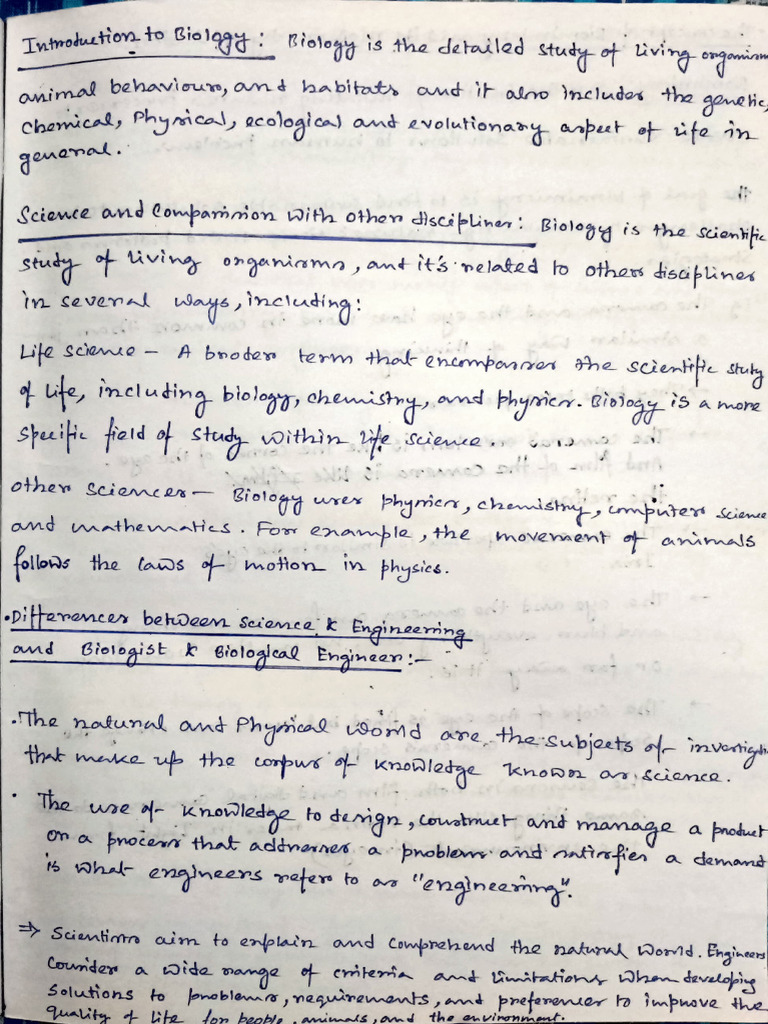 Introduction to Biology: Biology is the detailed study of living organism
animal behaviour, and habitats and it also includes the genetic,
chemical, Physical, ecological and evolutionary aspect of life in
general.
Science and Comparision with other disciplines: Biology is the scientific
study of living organisms, and it's related to other disciplines
in several ways, including:
Life science - A broder term that encompasses the scientific study
of life, including biology, chemistry, and physics. Biology is a more
specific field of study within life science.
other sciences - Biology uses physics, chemistry, computer science
and mathematics. For example, the movement of animals
follows the laws of motion in physics.
• Differences between Science & Engineering
and Biologist & Biological Engineer:-
• The natural and Physical world are the subjects of investigati
that make up the corpus of knowledge known as science.
• The use of knowledge to design, construct and manage a product
or a process that addresses a problem and satisfies a demand
is what engineers refer to as "engineering".
⇒ Scientists aim to explain and comprehend the natural world. Engineers
consider a wide range of criteria and limitations when developing
solutions to problems, requirements, and preferences to improve the
quality of life for people, animals, and the environment.